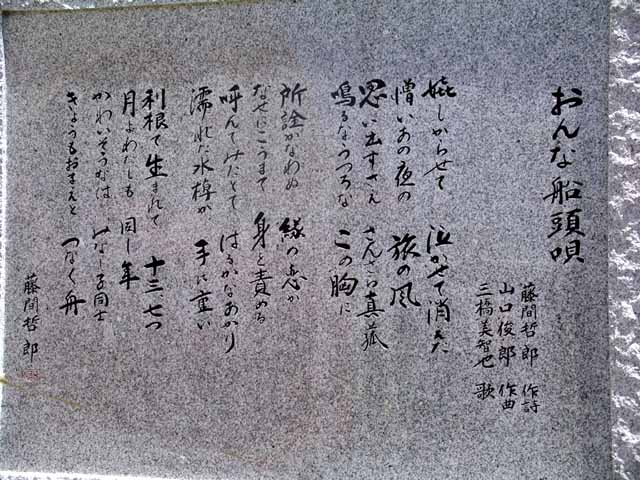 おんな船頭唄
藤間哲郎 作詩
山口俊郎 作曲
三橋美智也 歌
嬉しがらせて 泣かせて消えた
憎いあの夜の 旅の風
思い出すさえ ざんざら真菰
鳴るなうつろな この胸に
所詮かなわぬ 縁の恋が
なぜにこうまで 身を責める
呼んでみたとて はるかなあかり
濡れた水棹が 手に重い
利根で生まれて 十三、七つ
月よわたしも 同じ年
かわいそうなは みなし子同士
きょうもおまえと つなぐ舟
藤間哲郎